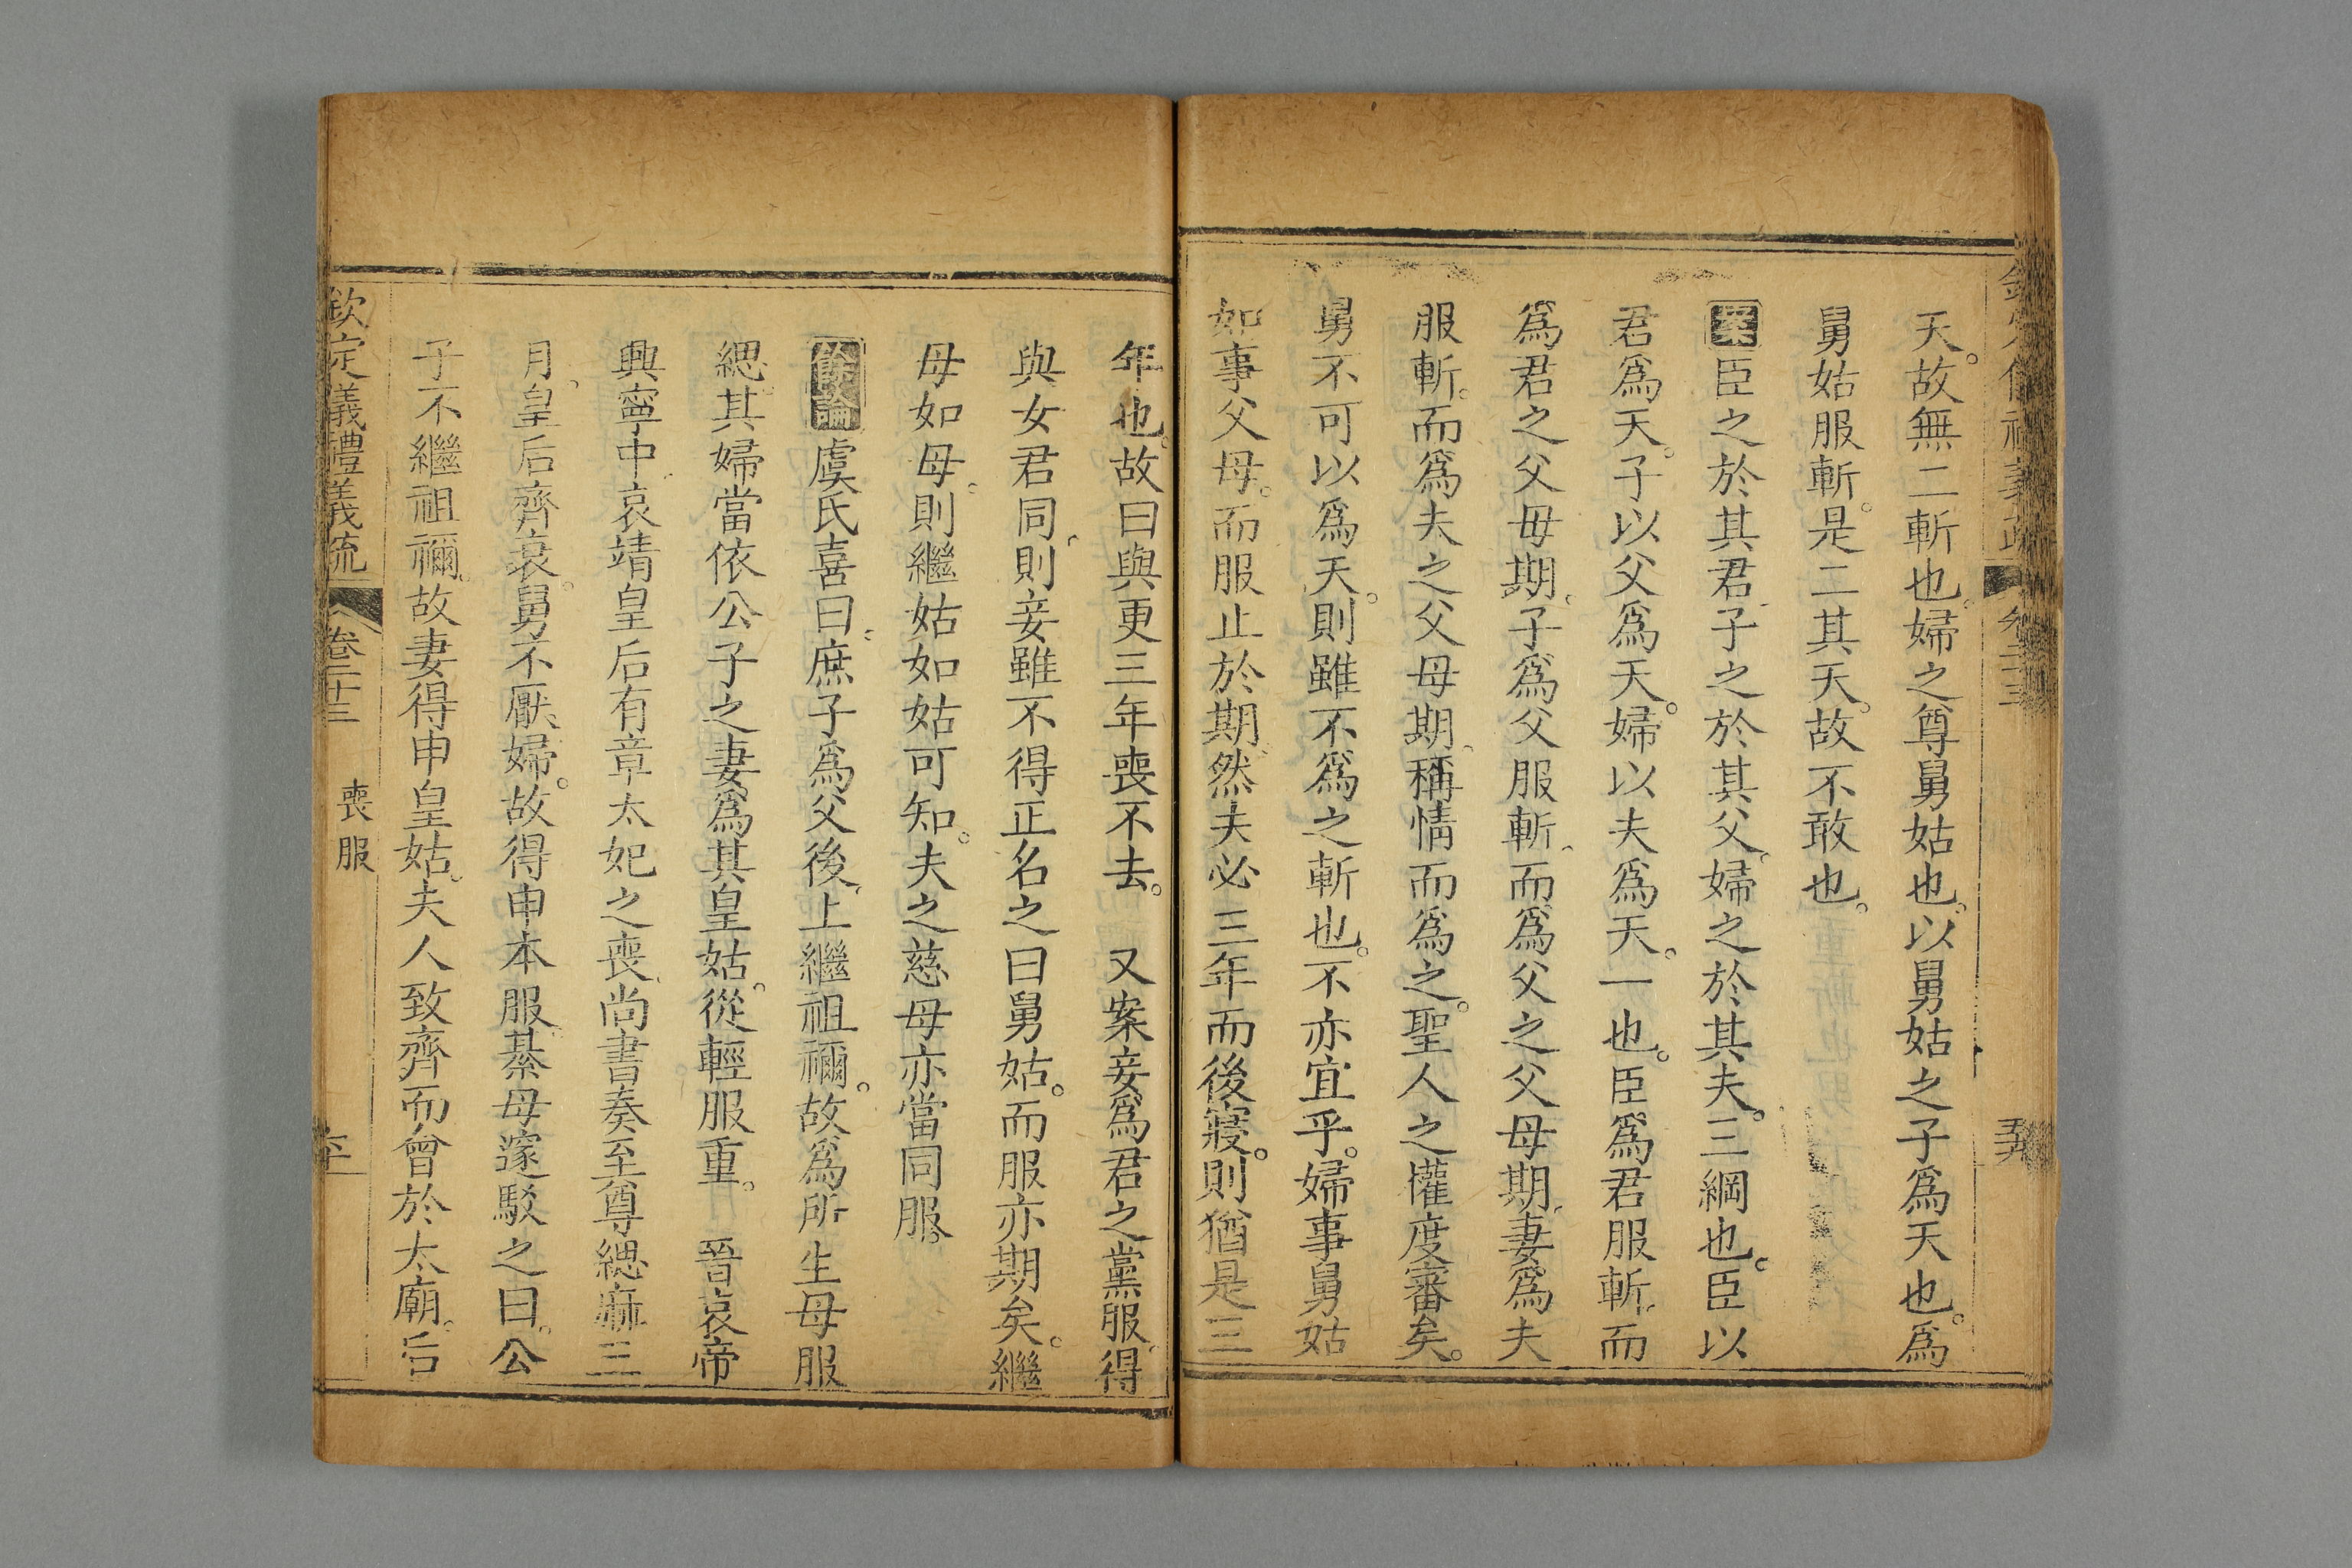 天。故無二斬也。婦之尊舅姑也。以舅姑之子爲天也。爲
舅姑服斬。是二其天。故不敢也。
案臣之於其君、子之於其父、婦之於其夫。三綱也。臣以
君爲天。子以父爲天。婦以夫爲天。一也。臣爲君服斬、而
爲君之父母期、子爲父服斬、而爲父之父母期、妻爲夫
服斬。而爲夫之父母期、稱情而爲之。聖人之權度審矣。
舅不可以爲天。則雖不爲之斬也。不亦宜乎。婦事舅姑
如事父母。而服止於期、然夫必三年而後寢。則猶是三
年也。故曰與更三年喪不去。 又案妾爲君之黨服、得
與女君同、則妾雖不得正名之曰舅姑。而服亦期矣。繼
母如母。則繼姑如姑可知。夫之慈母亦當同服。
餘論虞氏喜曰、庶子爲父後、上繼祖禰。故爲所生母服
緦。其婦當依公子之妻爲其皇姑。從輕服重。 晉哀帝
興寧中、哀靖皇后有章太妃之喪、尚書奏至尊緦麻三
月、皇后齊衰。舅不厭婦。故得申本服。綦母邃駁之曰。公
子不繼祖禰。故妻得申皇姑。夫人致齊而會於太廟。后
欽定義禮義疏 卷二十三 喪服